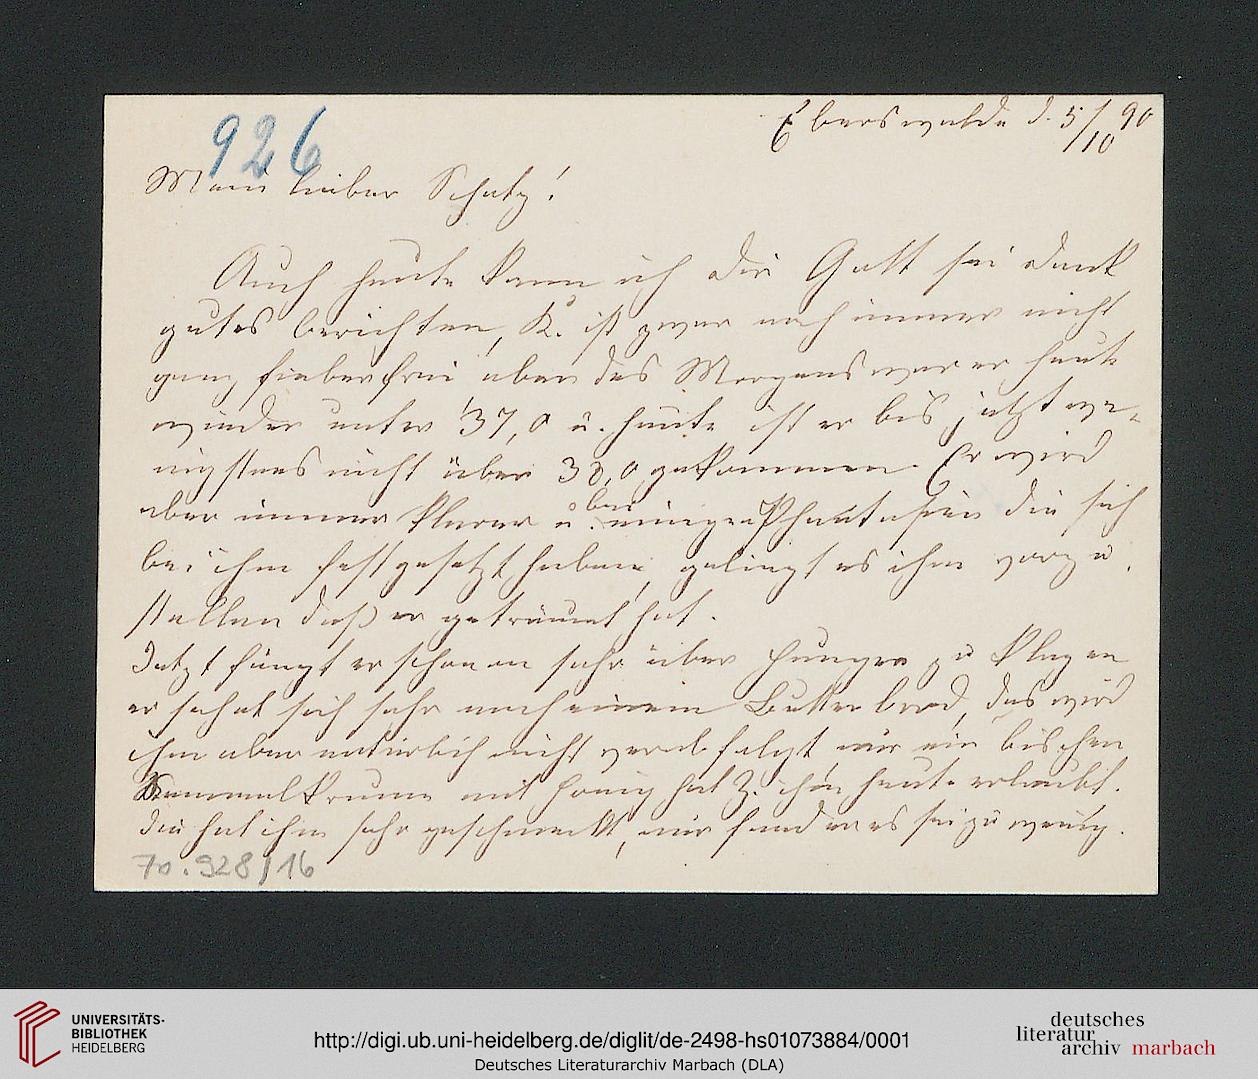 926
Eberswalde d. 5/10 90
Mein lieber Schatz!
Auch heute kann ich dir Gott sei dank
gutes berichten, K. ist zwar noch immer nicht
ganz fieberfrei aber des Morgens war er heute
wieder unter 37,0 u. heute ist er bis jetzt we-
nigstens nicht über 38,0 gekommen. Er wird
aber immer klarer u bei einigen Phantasien die sich
bei ihm festgesetzt haben, gelingt es ihm vorzu
stellen daß er geträumt hat.
Jetzt fängt er schon an sehr über Hunger zu klagen
er sehnt sich sehr nach einem Butterbrod, das wird
ihm aber natürlich nicht verabfolgt, nur ein bischen
Semmelkrume mit Honig hat Z. ihm heute erlaubt.
die hat ihm sehr geschmeckt, nur fand er es sei zu wenig.
70.928/16
UNIVERSITÄTS-
BIBLIOTHEK
HEIDELBERG
http://digi.ub.uni-heidelberg.de/diglit/de-2498-hs01073884/0001
Deutsches Literaturarchiv Marbach (DLA)
deutsches
literatur
archiv marbach